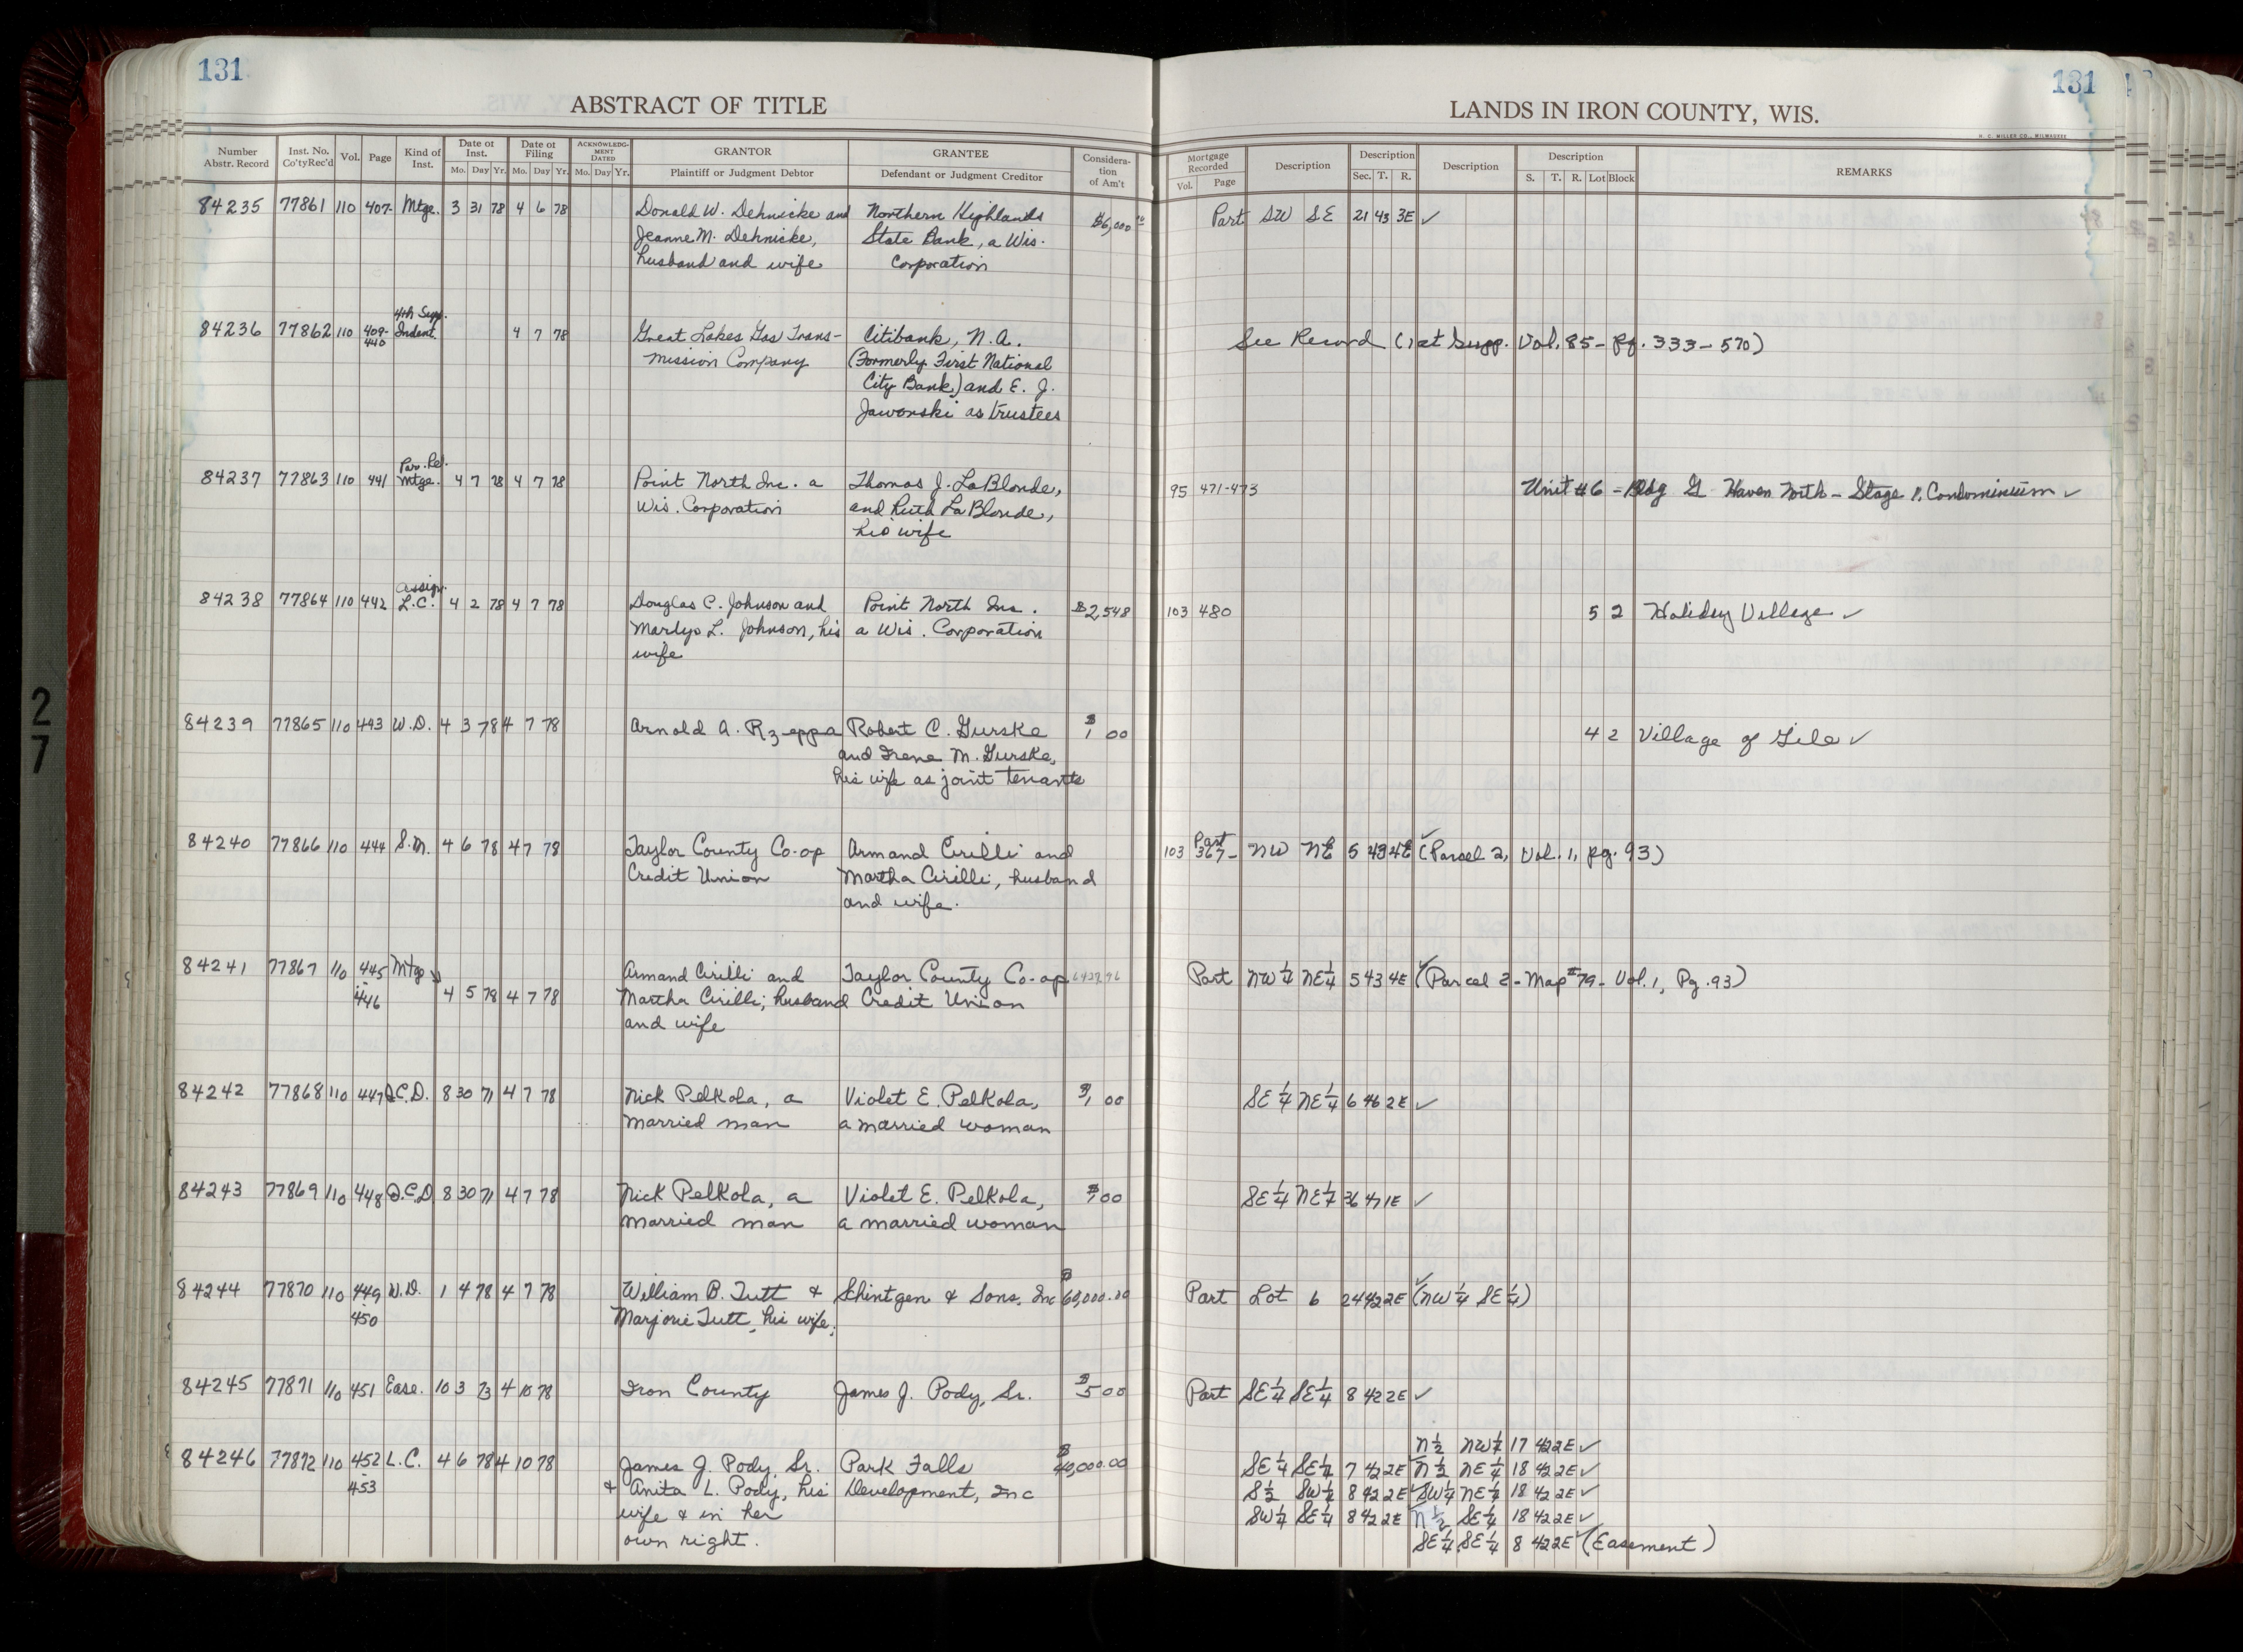 131
ABSTRACT OF TITLE
Number Abstr. Record Inst. No. Co'tyRec'd Vol. Page Kind of Inst. Date of Inst. Mo. Day Yr. Date of Filing Mo. Day Yr. ACKNOWLEDGMENT DATED Mo. Day Yr. GRANTOR Plaintiff or Judgment Debtor GRANTEE Defendant or Judgment Creditor Considera-tion of Am't
84235 77861 110 407- Mtge. 3 31 78 4 6 78 Donald W. Dehnicke and Northern Highlands $6,000
Jeanne M. Dehnicke, State Bank, a Wis.
husband and wife Corporation
4th Supp.
84236 77862 110 409-440 Indent. 4 7 78 Great Lakes Gas Trans- Citibank, N.A.
mission Company (Formerly First National
City Bank) and E. J.
Jaworski as trustees
Par. Rel.
84237 77863 110 441 Mtge. 4 7 78 4 7 78 Point North Inc. a Thomas J. LaBlonde,
Wis. Corporation and Ruth LaBlonde,
his wife
Assign.
84238 77864 110 442 L.C. 4 2 78 4 7 78 Douglas C. Johnson and Point North Inc. $2,548
Marlys L. Johnson, his a Wis. Corporation
wife
84239 77865 110 443 W.D. 4 3 78 4 7 78 Arnold A. Rzeppa Robert C. Gurske $1 00
and Irene M. Gurske,
his wife as joint tenants
84240 77866 110 444 S.M. 4 6 78 4 7 78 Taylor County Co-op Armand Cirilli and
Credit Union Martha Cirilli, husband
and wife.
84241 77867 110 445-446 Mtge 4 5 78 4 7 78 Armand Cirilli and Taylor County Co-op
Martha Cirilli, husband Credit Union
and wife
84242 77868 110 447 Q.C.D. 8 30 71 4 7 78 Nick Pelkola, a Violet E. Pelkola, $1 00
married man a married woman
84243 77869 110 448 Q.C.D 8 30 71 4 7 78 Nick Pelkola, a Violet E. Pelkola, $1 00
married man a married woman
84244 77870 110 449-450 W.D. 1 4 78 4 7 78 William B. Tutt & Schintgen & Sons, Inc $60,000.00
Marjorie Tutt, his wife,
84245 77871 110 451 Ease. 10 3 73 4 10 78 Iron County James J. Pody, Sr. $5 00
84246 77872 110 452-453 L.C. 4 6 78 4 10 78 James J. Pody, Sr. Park Falls $40,000.00
& Anita L. Pody, his Development, Inc
wife & in her
own right.
131
LANDS IN IRON COUNTY, WIS.
H. C. MILLER CO., MILWAUKEE
Mortgage Recorded Vol. Page Description Description Sec. T. R. Description Description S. T. R. Lot Block REMARKS
Part SW SE 21 43 3E ✓
See Record (1st Supp. Vol. 85 - Pg. 333 - 570)
95 471-473 Unit #6 - Bldg G Haven North - Stage 1, Condominium ✓
103 480 5 2 Holiday Village ✓
4 2 Village of Gile ✓
103 367- Part NW NE 5 43 4E ✓ (Parcel 2, Vol. 1, pg. 93)
Part NW 1/4 NE 1/4 5 43 4E ✓ (Parcel 2 - Map #79 - Vol. 1, Pg. 93)
SE 1/4 NE 1/4 6 46 2E ✓
SE 1/4 NE 1/4 36 47 1E ✓
Part Lot 6 24 42 2E ✓ (NW 1/4 SE 1/4)
Part SE 1/4 SE 1/4 8 42 2E ✓
N 1/2 NW 1/4 17 42 2E ✓
SE 1/4 SE 1/4 7 42 2E ✓ N 1/2 NE 1/4 18 42 2E ✓
S 1/2 SW 1/4 8 42 2E ✓ SW 1/4 NE 1/4 18 42 2E ✓
SW 1/4 SE 1/4 8 42 2E N 1/2 SE 1/4 18 42 2E ✓
SE 1/4 SE 1/4 8 42 2E ✓ (Easement)
27